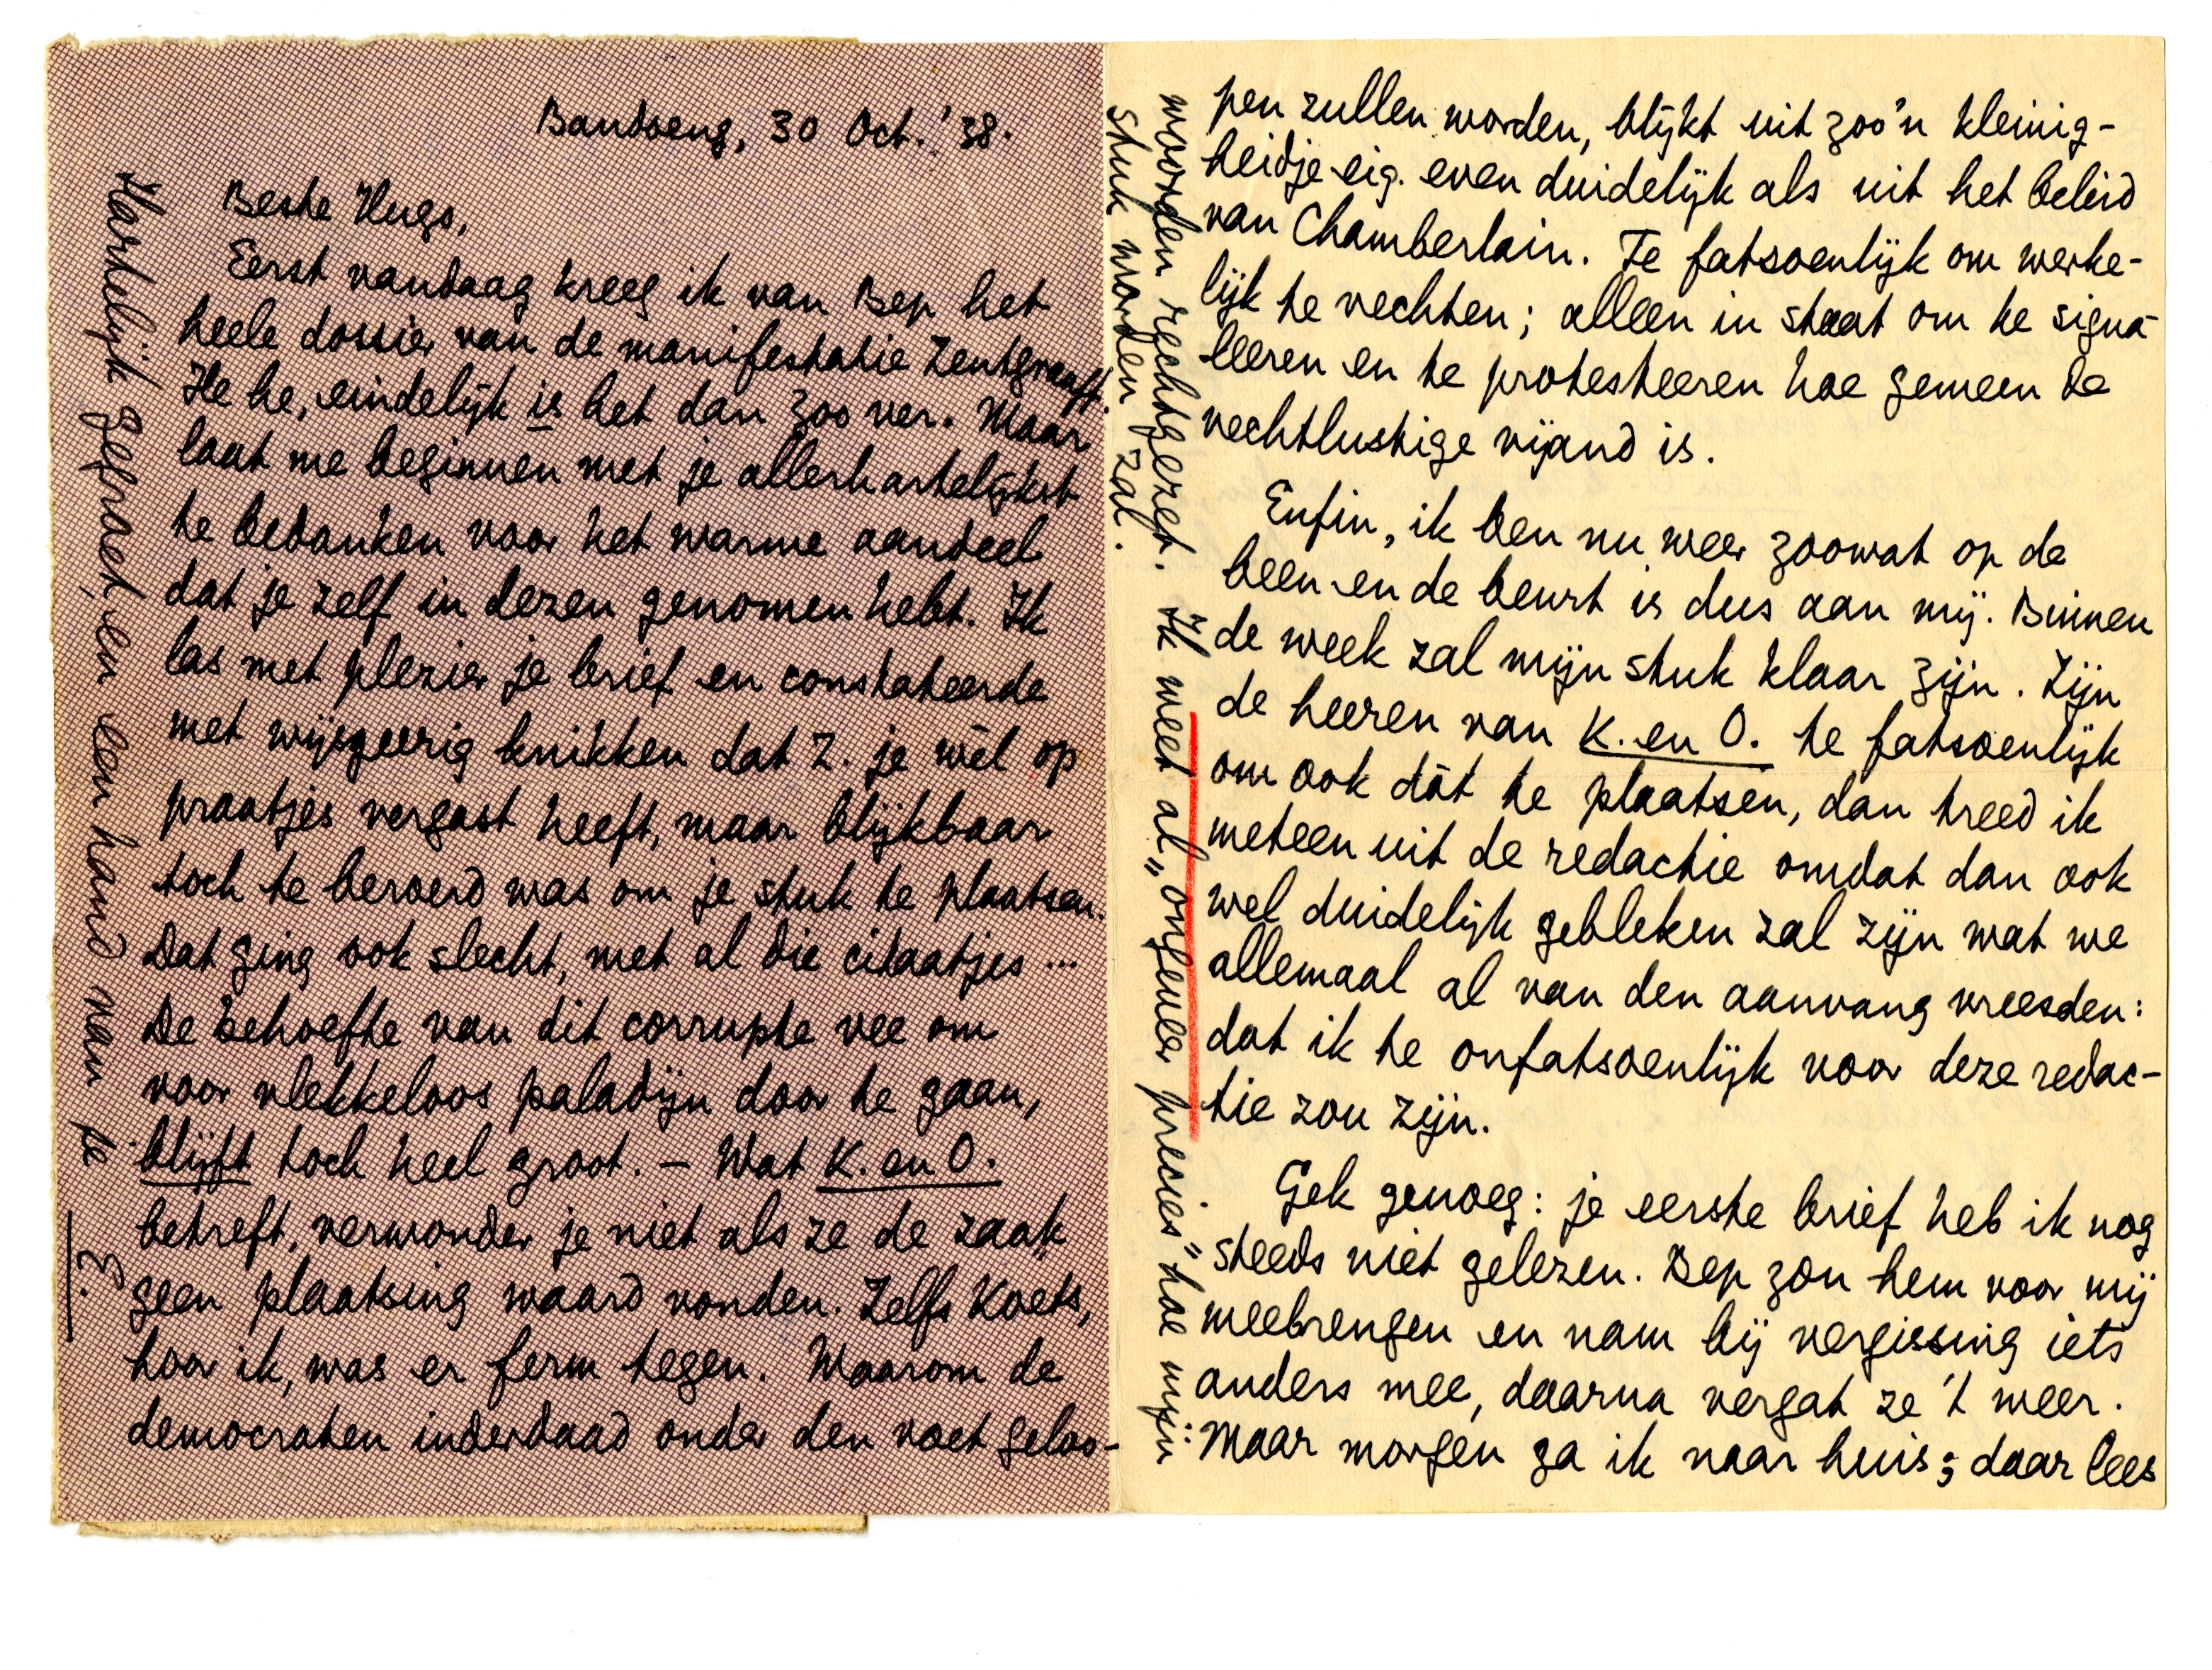 Bandoeng, 30 Oct. '38.
Beste Hugo,
Eerst vandaag kreeg ik van Bep het
heele dossier van de manifestatie Zentgraaff.
He he, eindelijk is het dan zoo ver. Maar
laat me beginnen met je allerhartelijkst
te bedanken voor het warme aandeel
dat je zelf in dezen genomen hebt. Ik
las met plezier je brief en constateerde
met wijsgeerig knikken dat Z. je wèl op
praatjes vergast heeft, maar blijkbaar
toch te beroerd was om je stuk te plaatsen.
Dat ging ook slecht, met al die citaatjes ...
De behoefte van dit corrupte vee om
voor vlekkeloos paladijn door te gaan,
blijft toch heel groot. – Wat K. en O.
betreft, verwonder je niet als ze de zaak
geen plaatsing waard vonden. Zelfs Koets,
hoor ik, was er ferm tegen. Waarom de
democraten inderdaad onder den voet geloo-
pen zullen worden, blijkt uit zoo'n kleinig-
heidje eig. even duidelijk als uit het beleid
van Chamberlain. Te fatsoenlijk om werke-
lijk te vechten; alleen in staat om te signa-
leeren en te protesteeren hoe gemeen de
vechtlustige vijand is.
Enfin, ik ben nu weer zoowat op de
been en de beurt is dus aan mij. Binnen
de week zal mijn stuk klaar zijn. Zijn
de heeren van K. en O. te fatsoenlijk
om ook dàt te plaatsen, dan treed ik
meteen uit de redactie omdat dan ook
wel duidelijk gebleken zal zijn wat we
allemaal al van den aanvang vreesden:
dat ik te onfatsoenlijk voor deze redac-
tie zou zijn.
Gek genoeg: je eerste brief heb ik nog
steeds niet gelezen. Bep zou hem voor mij
meebrengen en nam bij vergissing iets
anders mee, daarna vergat ze 't weer.
Maar morgen ga ik naar huis; daar lees
woorden rechtgezet. Ik weet al „ongeveer precies" hoe mijn
stuk worden zal.
Hartelijk gegroet, en een hand van je
E.